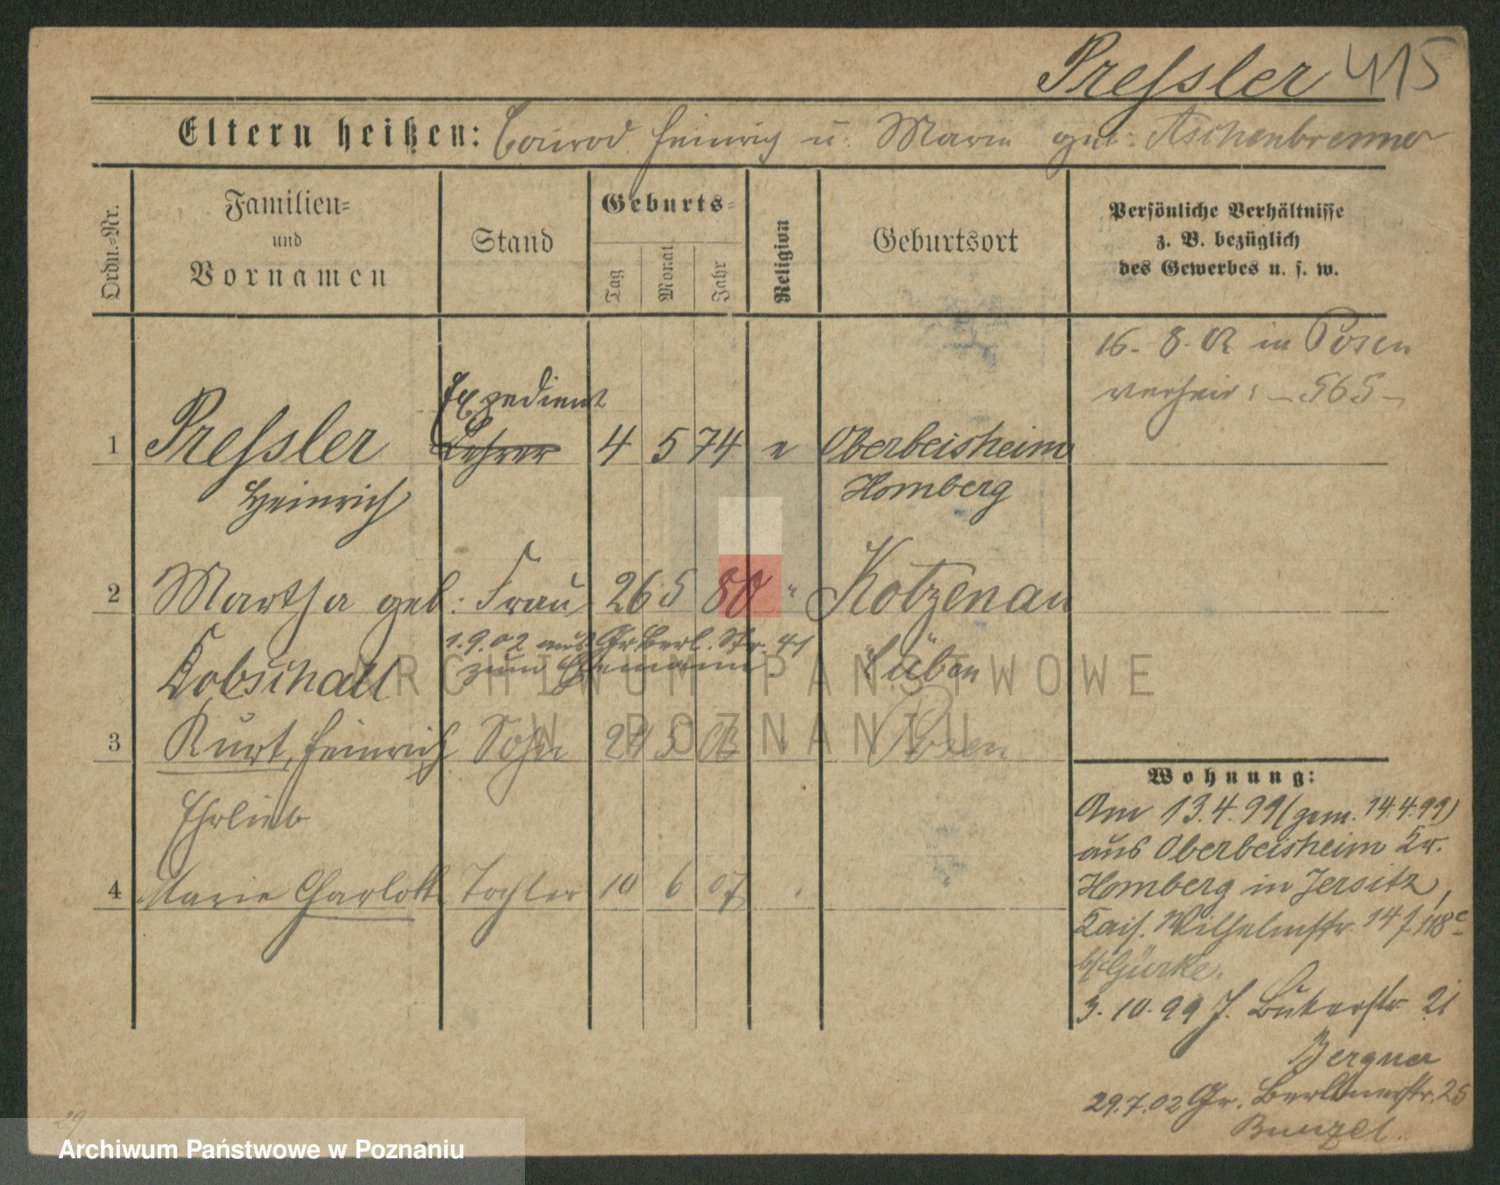 Pressler 415
Eltern heißen: Conrad Heinrich u. Marie geb. Aschenbrenner
Ordn.-Nr.
Familien-
und
Vornamen
Stand
Geburts-
Tag
Monat
Jahr
Religion
Geburtsort
Persönliche Verhältnisse
z. B. bezüglich
des Gewerbes u. s. w.
16. 8. 02 in Posen
verheir: - 565 -
Expedient
1 Pressler Lehrer 4 5 74 e Oberbeisheim
Heinrich Homberg
2 Martha geb. Frau 26 5 80 " Kotzenau
1.9.02 aus Gr. Berl. Str. 41
Kobschall zum Ehemann Lüben
3 Kurt, Heinrich Sohn 24 5 Posen
Ehrlieb
4 Marie Charlott Tochter 10 6 07
Wohnung:
Am 13.4.99 (gem. 14.4.99)
aus Oberbeisheim Kr.
Homberg in Jersitz,
Kais. Wilhelmstr. 14
b/ Gürke.
3.10.99 J. 21
Bergner
29.7.02 Gr. Berlinerstr. 25
Bunzel
ARCHIWUM PAŃSTWOWE
W POZNANIU
29
Archiwum Państwowe w Poznaniu